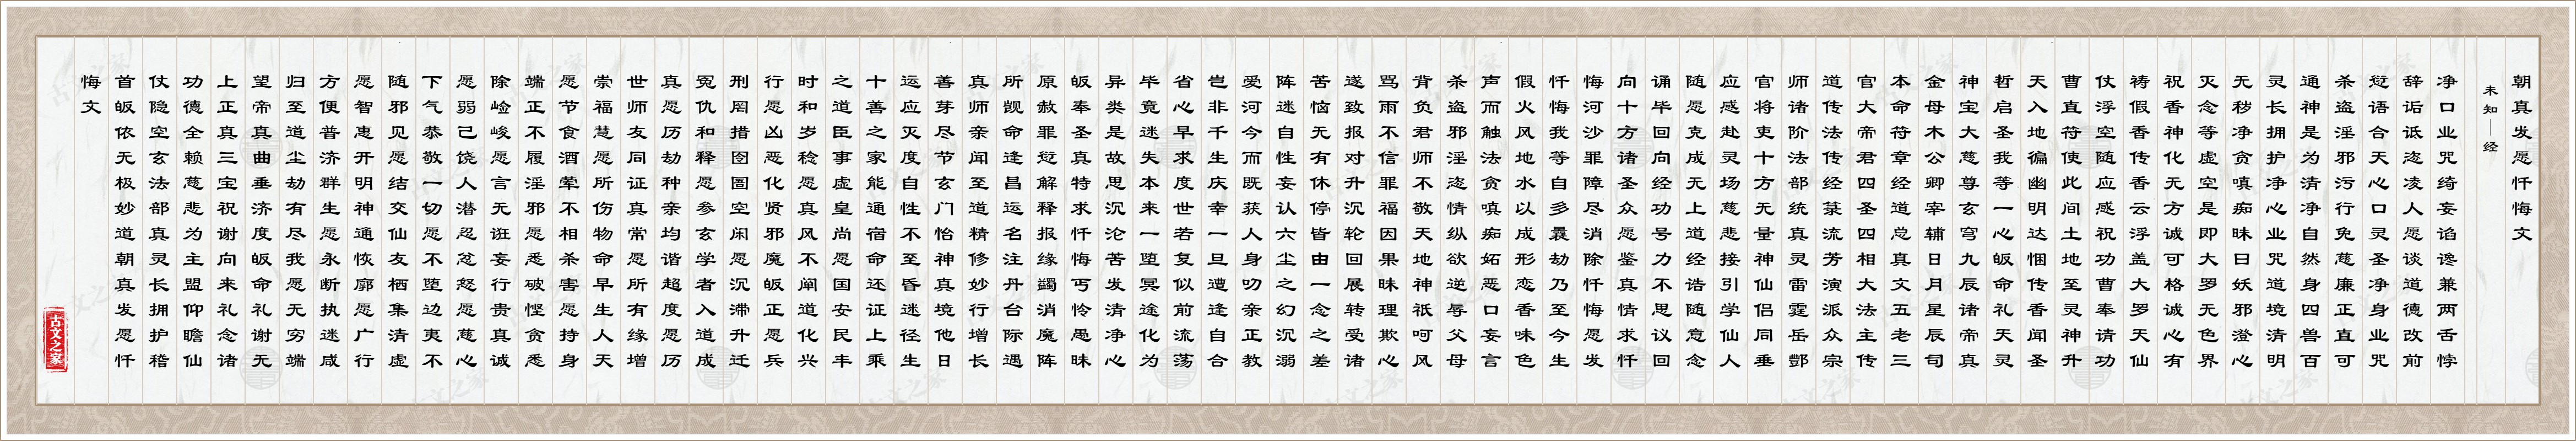 朝真发愿忏悔文
未知—经
净口业咒绮妄谄谗兼两舌悖
辞诟诋恣凌人愿谈道德改前
愆语合天心口灵圣净身业咒
杀盗淫邪污行免慈廉正直可
通神是为清净自然身四兽百
灵长拥护净心业咒道境清明
无秽净贪嗔痴昧曰妖邪澄心
灭念等虚空是即大罗无色界
祝香神化无方诚可格诚心有
祷假香传香云浮盖大罗天仙
仗浮空随应感祝功曹奉请功
曹直符使此间土地至灵神升
天入地徧幽明达悃传香闻圣
哲启圣我等一心皈命礼天灵
神宝大慈尊玄穹九辰诸帝真
金母木公卿宰辅日月星辰司
本命符章经道总真文五老三
官大帝君四圣四相大法主传
道传法传经箓流芳演派众宗
师诸阶法部统真灵雷霆岳酆
官将吏十方无量神仙侣同垂
应感赴灵场慈悲接引学仙人
随愿克成无上道经诰随意念
诵毕回向经功号力不思议回
向十方诸圣众愿鉴真情求忏
悔河沙罪障尽消除忏悔愿发
忏悔我等自多曩劫乃至今生
假火风地水以成形恋香味色
声而触法贪嗔痴妬恶口妄言
杀盗邪淫恣情纵欲逆辱父母
背负君师不敬天地神祇呵风
骂雨不信罪福因果昧理欺心
遂致报对升沉轮回展转受诸
苦恼无有休停皆由一念之差
阵迷自性妄认六尘之幻沉溺
爱河今而既获人身叨亲正教
岂非千生庆幸一旦遭逢自合
省心早求度世若复似前流荡
毕竟迷失本来一堕冥途化为
异类是故思沉沦苦发清净心
皈奉圣真特求忏悔丐怜愚昧
原赦罪愆解释报缘蠲消魔阵
所觊命逢昌运名注丹台际遇
真师亲闻至道精修妙行增长
善芽尽节玄门怡神真境他日
运应灭度自性不至昏迷径生
十善之家能通宿命还证上乘
之道臣事虚皇尚愿国安民丰
时和岁稔愿真风不阐道化兴
行愿凶恶化贤邪魔皈正愿兵
刑罔措图圄空闲愿沉滞升迁
冤仇和释愿参玄学者入道成
真愿历劫种亲均谐超度愿历
世师友同证真常愿所有缘增
崇福慧愿所伤物命早生人天
愿节食酒荤不相杀害愿持身
端正不履淫邪愿悉破悭贪悉
除崄峻愿言无诳妄行贵真诚
愿弱己饶人潜忍忿怒愿慈心
下气恭敬一切愿不堕边夷不
随邪见愿结交仙友栖集清虚
愿智惠开明神通恢廓愿广行
方便普济群生愿永断执迷咸
归至道尘劫有尽我愿无穷端
望帝真曲垂济度皈命礼谢无
上正真三宝祝谢向来礼念诸
功德全赖慈悲为主盟仰瞻仙
仗隐空玄法部真灵长拥护稽
首皈依无极妙道朝真发愿忏
悔文
古文之家